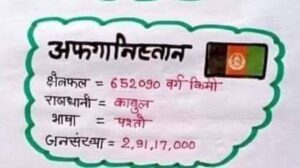 अफगानिस्तान
क्षेत्रफल = 652090 वर्ग किमी
राजधानी = काबुल
भाषा = पश्तो
जनसंख्या = 2,91,17,000